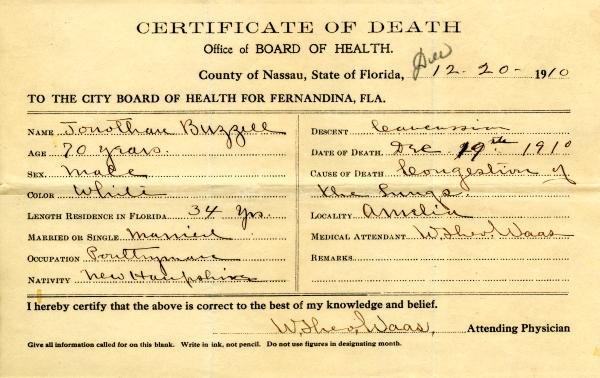 CERTIFICATE OF DEATH
Office of BOARD OF HEALTH.
County of Nassau, State of Florida, Dec 12-20- 1910
TO THE CITY BOARD OF HEALTH FOR FERNANDINA, FLA.
NAME Jonathan Buzzell
AGE 70 years.
SEX. Male
COLOR White
LENGTH RESIDENCE IN FLORIDA 34 Yrs.
MARRIED OR SINGLE Married
OCCUPATION Poultryman
NATIVITY New Hampshire
DESCENT Caucassin
DATE OF DEATH. Dec 19th 1910
CAUSE OF DEATH Congestion of
the Lungs.
LOCALITY Amelia
MEDICAL ATTENDANT W. Theo. Waas
REMARKS
I hereby certify that the above is correct to the best of my knowledge and belief.
W. Theo. Waas, Attending Physician
Give all information called for on this blank. Write in ink, not pencil. Do not use figures in designating month.